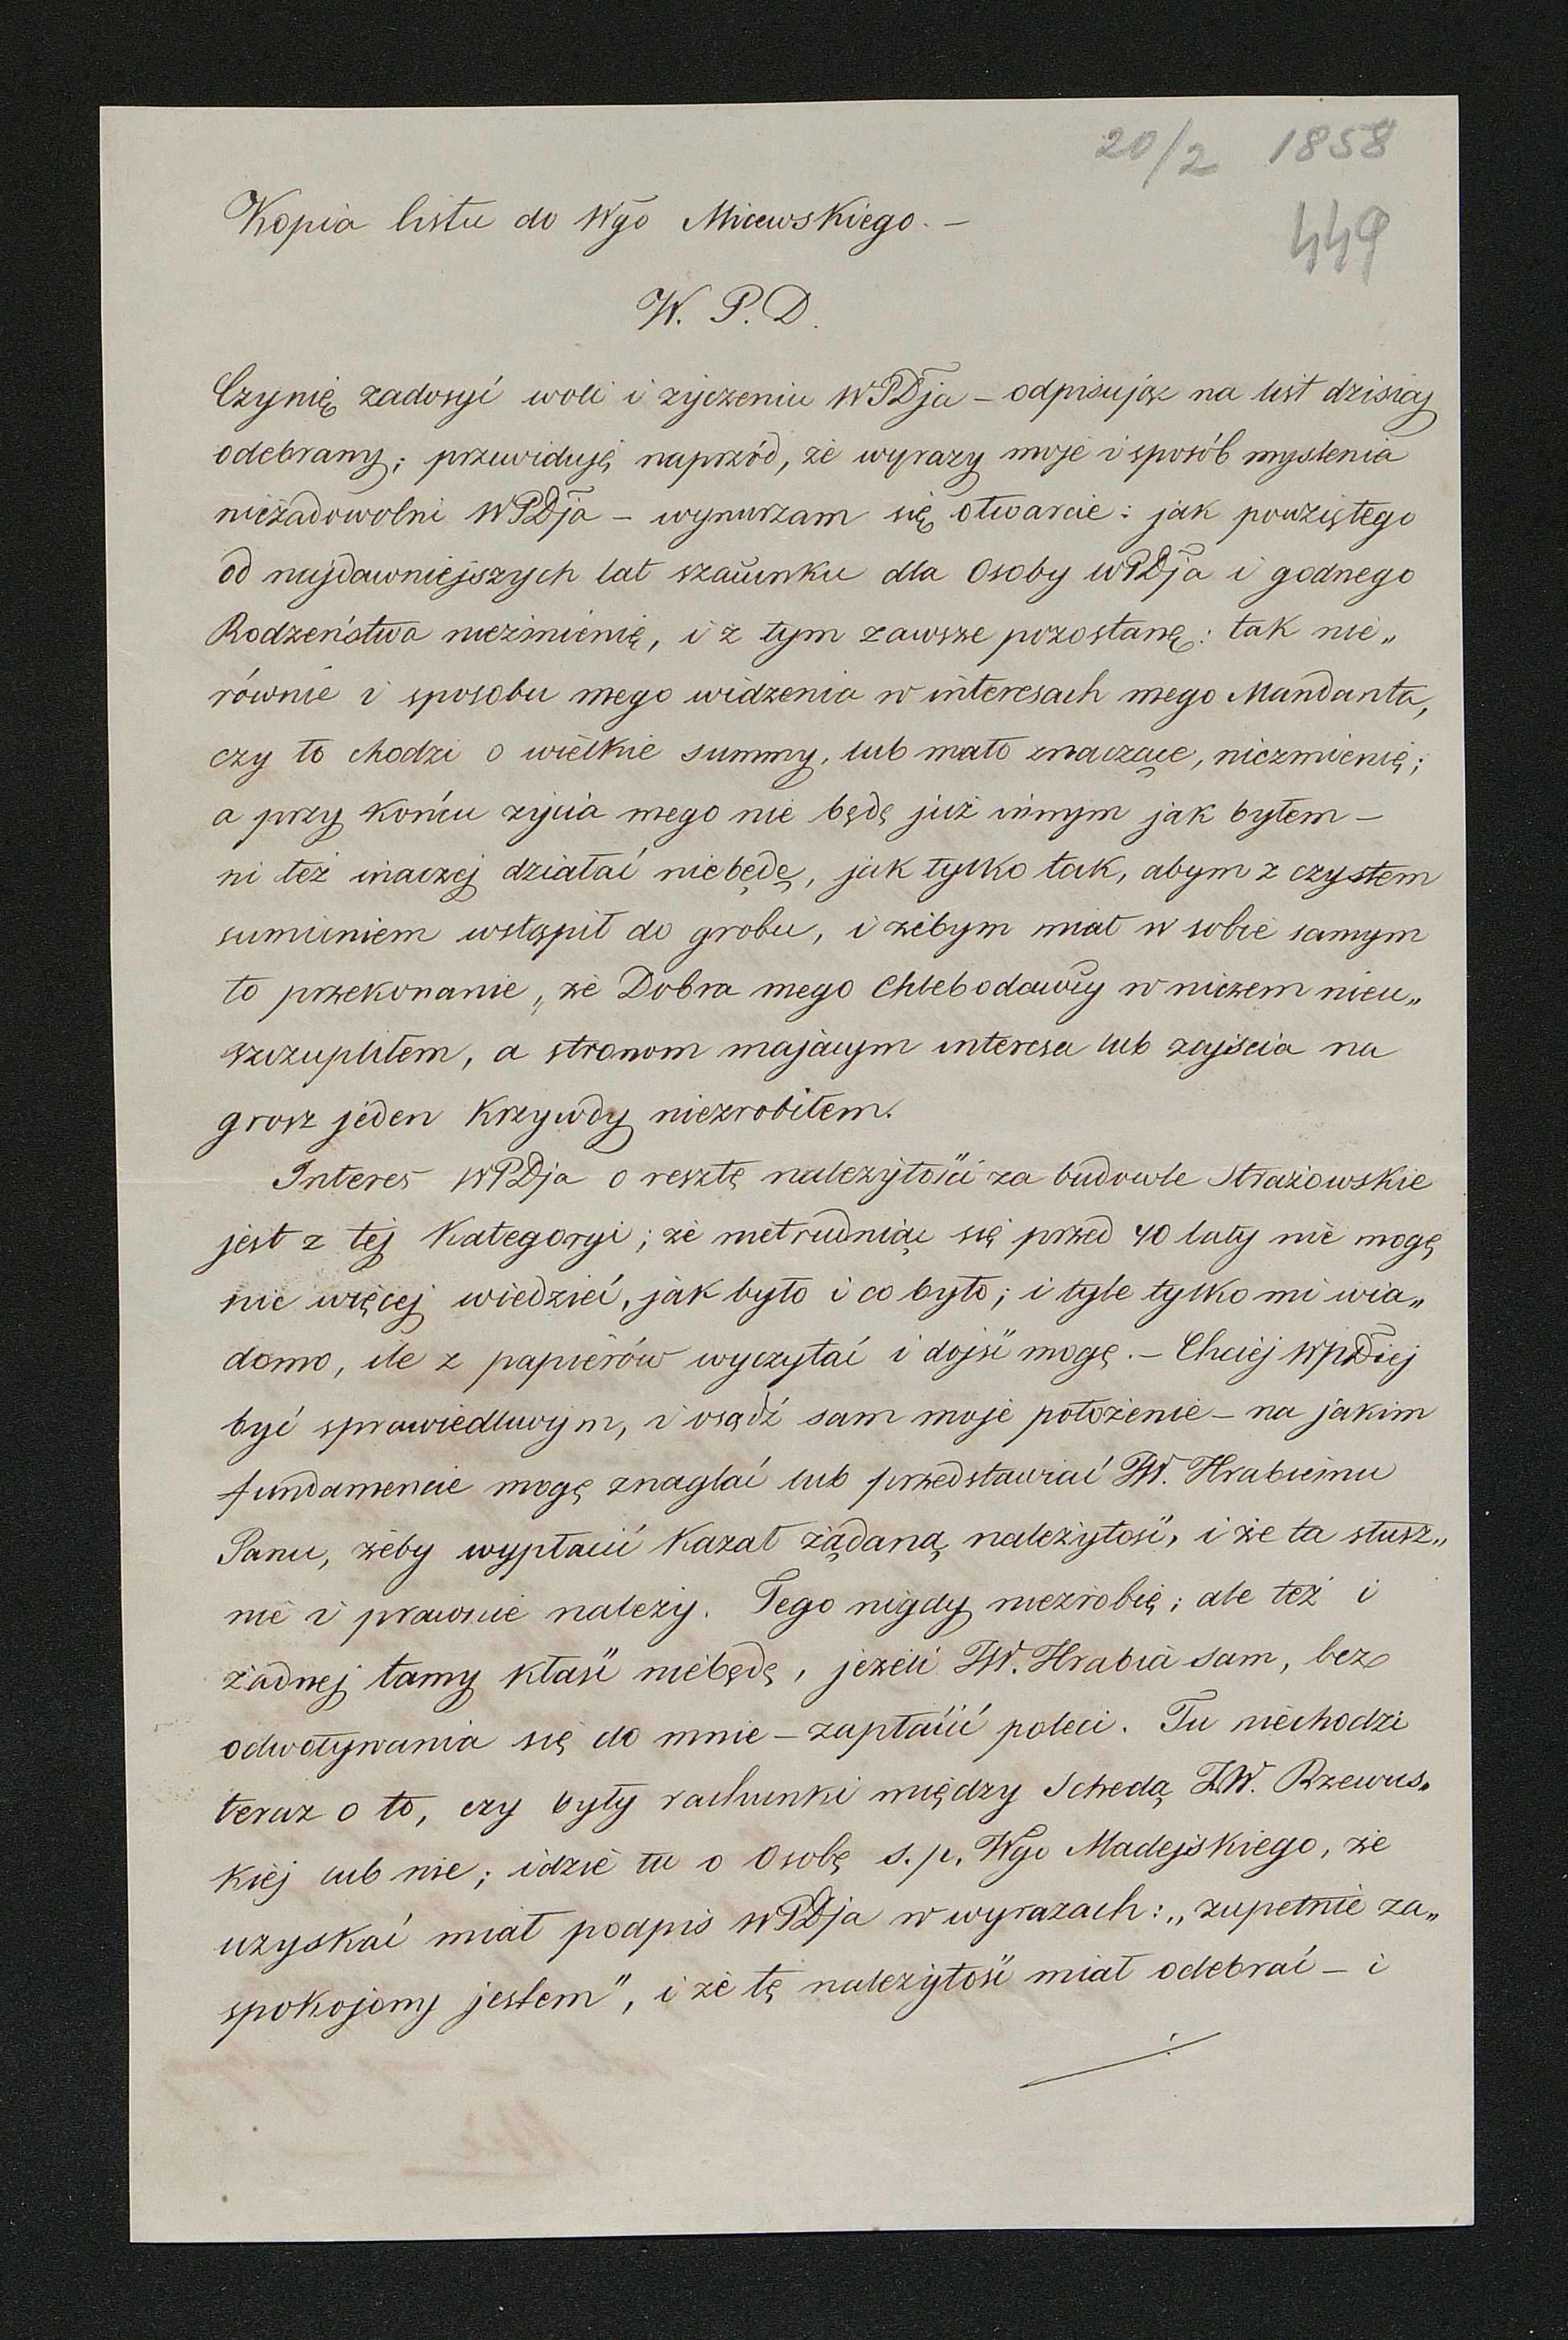 20/2 1858
449
Kopia listu do Wgo Micewskiego. –
W. P. D.
Czynię zadosyć woli i życzeniu WPDja – odpisując na list dzisiaj
odebrany; przewiduję naprzód, że wyrazy moje i sposób myslenia
niezadowolni WPDja – wynurzam się otwarcie: jak powziętego
od najdawniejszych lat szacunku dla Osoby WPDja i godnego
Rodzeństwa niezmienię, i z tym zawsze pozostanę: tak nie„
równie i sposobu mego widzenia w interesach mego Mandanta,
czy to chodzi o wielkie summy, lub mało znaczące, niezmienię;
a przy końcu życia mego nie będę już innym jak byłem –
ni też inaczej działać niebędę, jak tylko tak, abym z czystem
sumieniem wstąpił do grobu, i żebym miał w sobie samym
to przekonanie, że Dobra mego Chlebodawcy w niczem nieu„
szczupliłem, a stronom mającym interesa lub zajścia na
grosz jeden krzywdy niezrobiłem.
Interes WPDja o resztę należytości za budowle Strażowskie
jest z tej Kategoryi; że nietrudniąc się przed 40 laty nie mogę
nic więcej wiedzieć, jak było i co było; i tyle tylko mi wia„
domo, ile z papierów wyczytać i dojść mogę. – Chciej WPDziej
być sprawiedliwym, i osądź sam moje położenie – na jakim
fundamencie mogę znaglać lub przedstawiać JW. Hrabiemu
Panu, żeby wypłacić kazał żądaną należytość, i że ta słusz„
nie i prawnie należy. Tego nigdy niezrobię; ale też i
żadnej tamy kłaść niebędę, jeżeli JW. Hrabia sam, bez
odwoływania się do mnie – zapłacić poleci. Tu niechodzi
teraz o to, czy były rachunki między Schedą JW. Rzewus„
kiej lub nie; idzie tu o Osobę s. p. Wgo Madejskiego, że
uzyskać miał podpis WPDja w wyrazach: „zupełnie za„
spokojony jestem", i że tę należytość miał odebrać – i